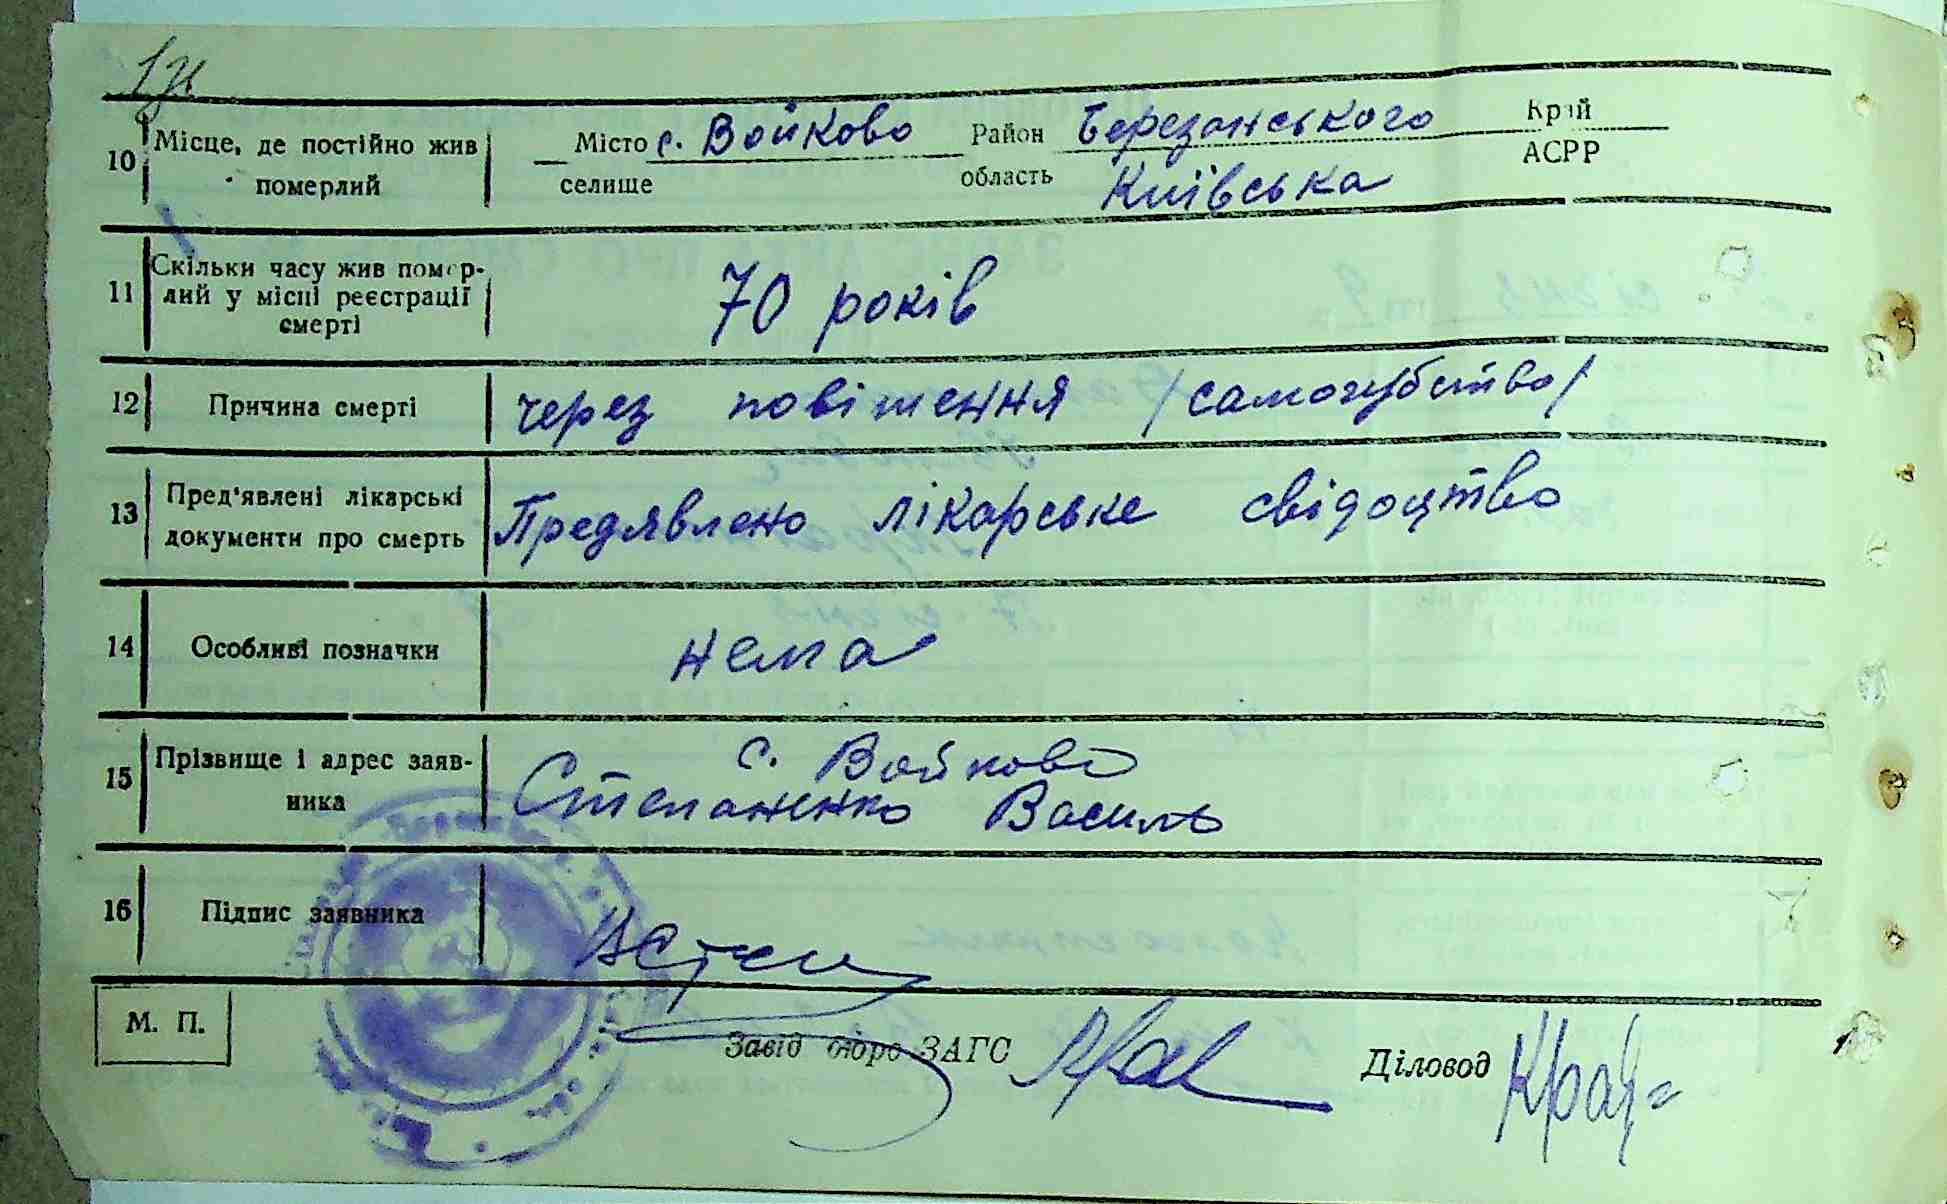 10 Місце, де постійно жив померлий
Місто с. Войково Район Березанського Край
селище область Київська АСРР
11 Скільки часу жив помер-
лий у місці реєстрації
смерті
70 років
12 Причина смерті
через повішення /самогубство/
13 Пред'явлені лікарські
документи про смерть
Предявлено лікарське свідоцтво
14 Особливі позначки
нема
15 Прізвище і адрес заяв-
ника
с. Войково
Степаненко Василь
16 Підпис заявника
М. П.
Завід бюро ЗАГС
Діловод